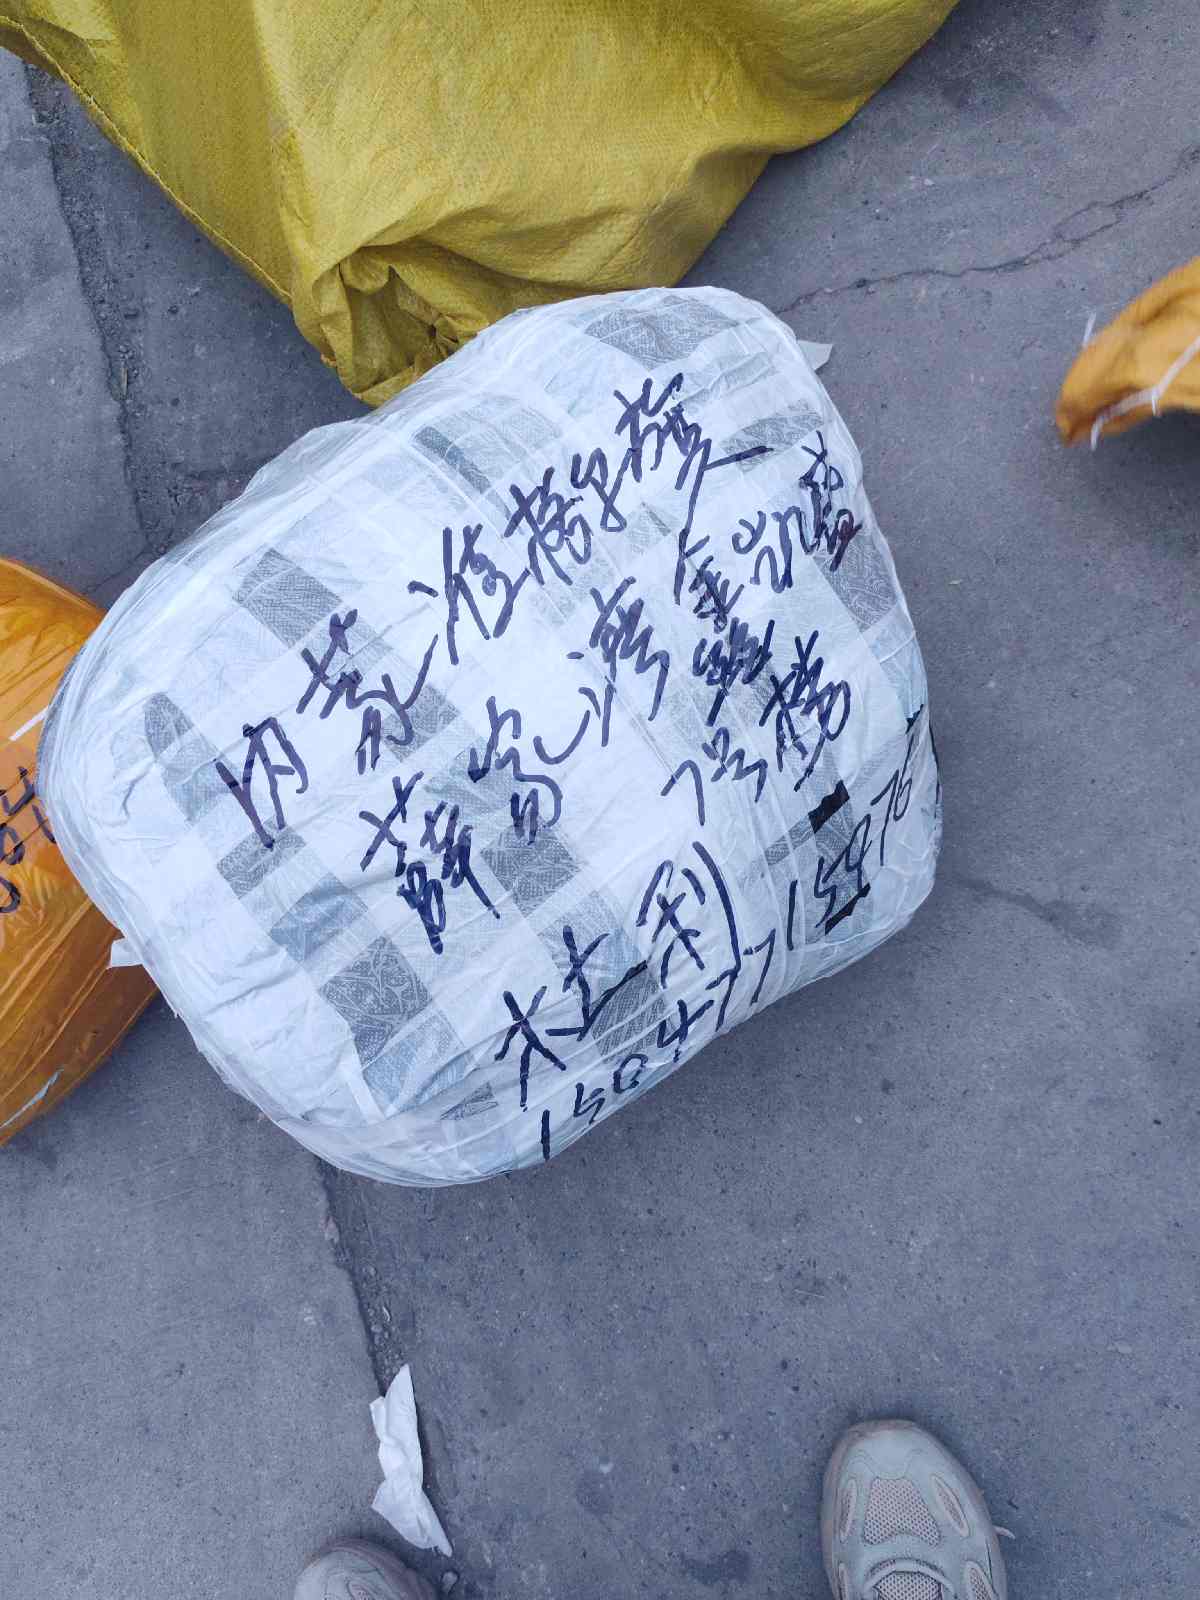 内蒙准格尔旗
薛家湾金凯盛
7号楼
杜利
15047715476